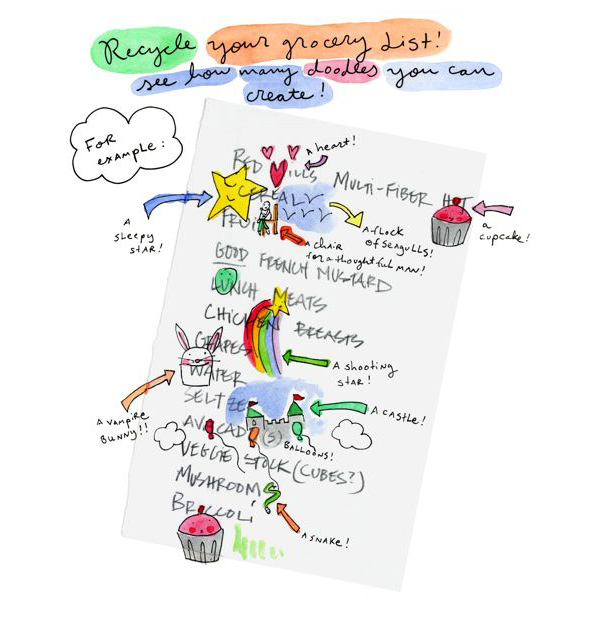 Recycle your grocery List!
see how many doodles you can
create!
FOR
example:
A heart!
RED MILLS MULTI-FIBER HOT
CEREAL
FRUIT
A
sleepy
STAR!
A flock
of seagulls!
a
cupcake!
A chair
for a thoughtful MAN!
GOOD FRENCH MUSTARD
LUNCH MEATS
CHICKEN BREASTS
GRAPES
A shooting
STAR!
WATER
SELTZER
A CASTLE!
A VAMPIRE
BUNNY!!
AVOCADO (S)
BALLOONS!
VEGGIE STOCK (CUBES?)
MUSHROOM
BROCCOLI
A SNAKE!